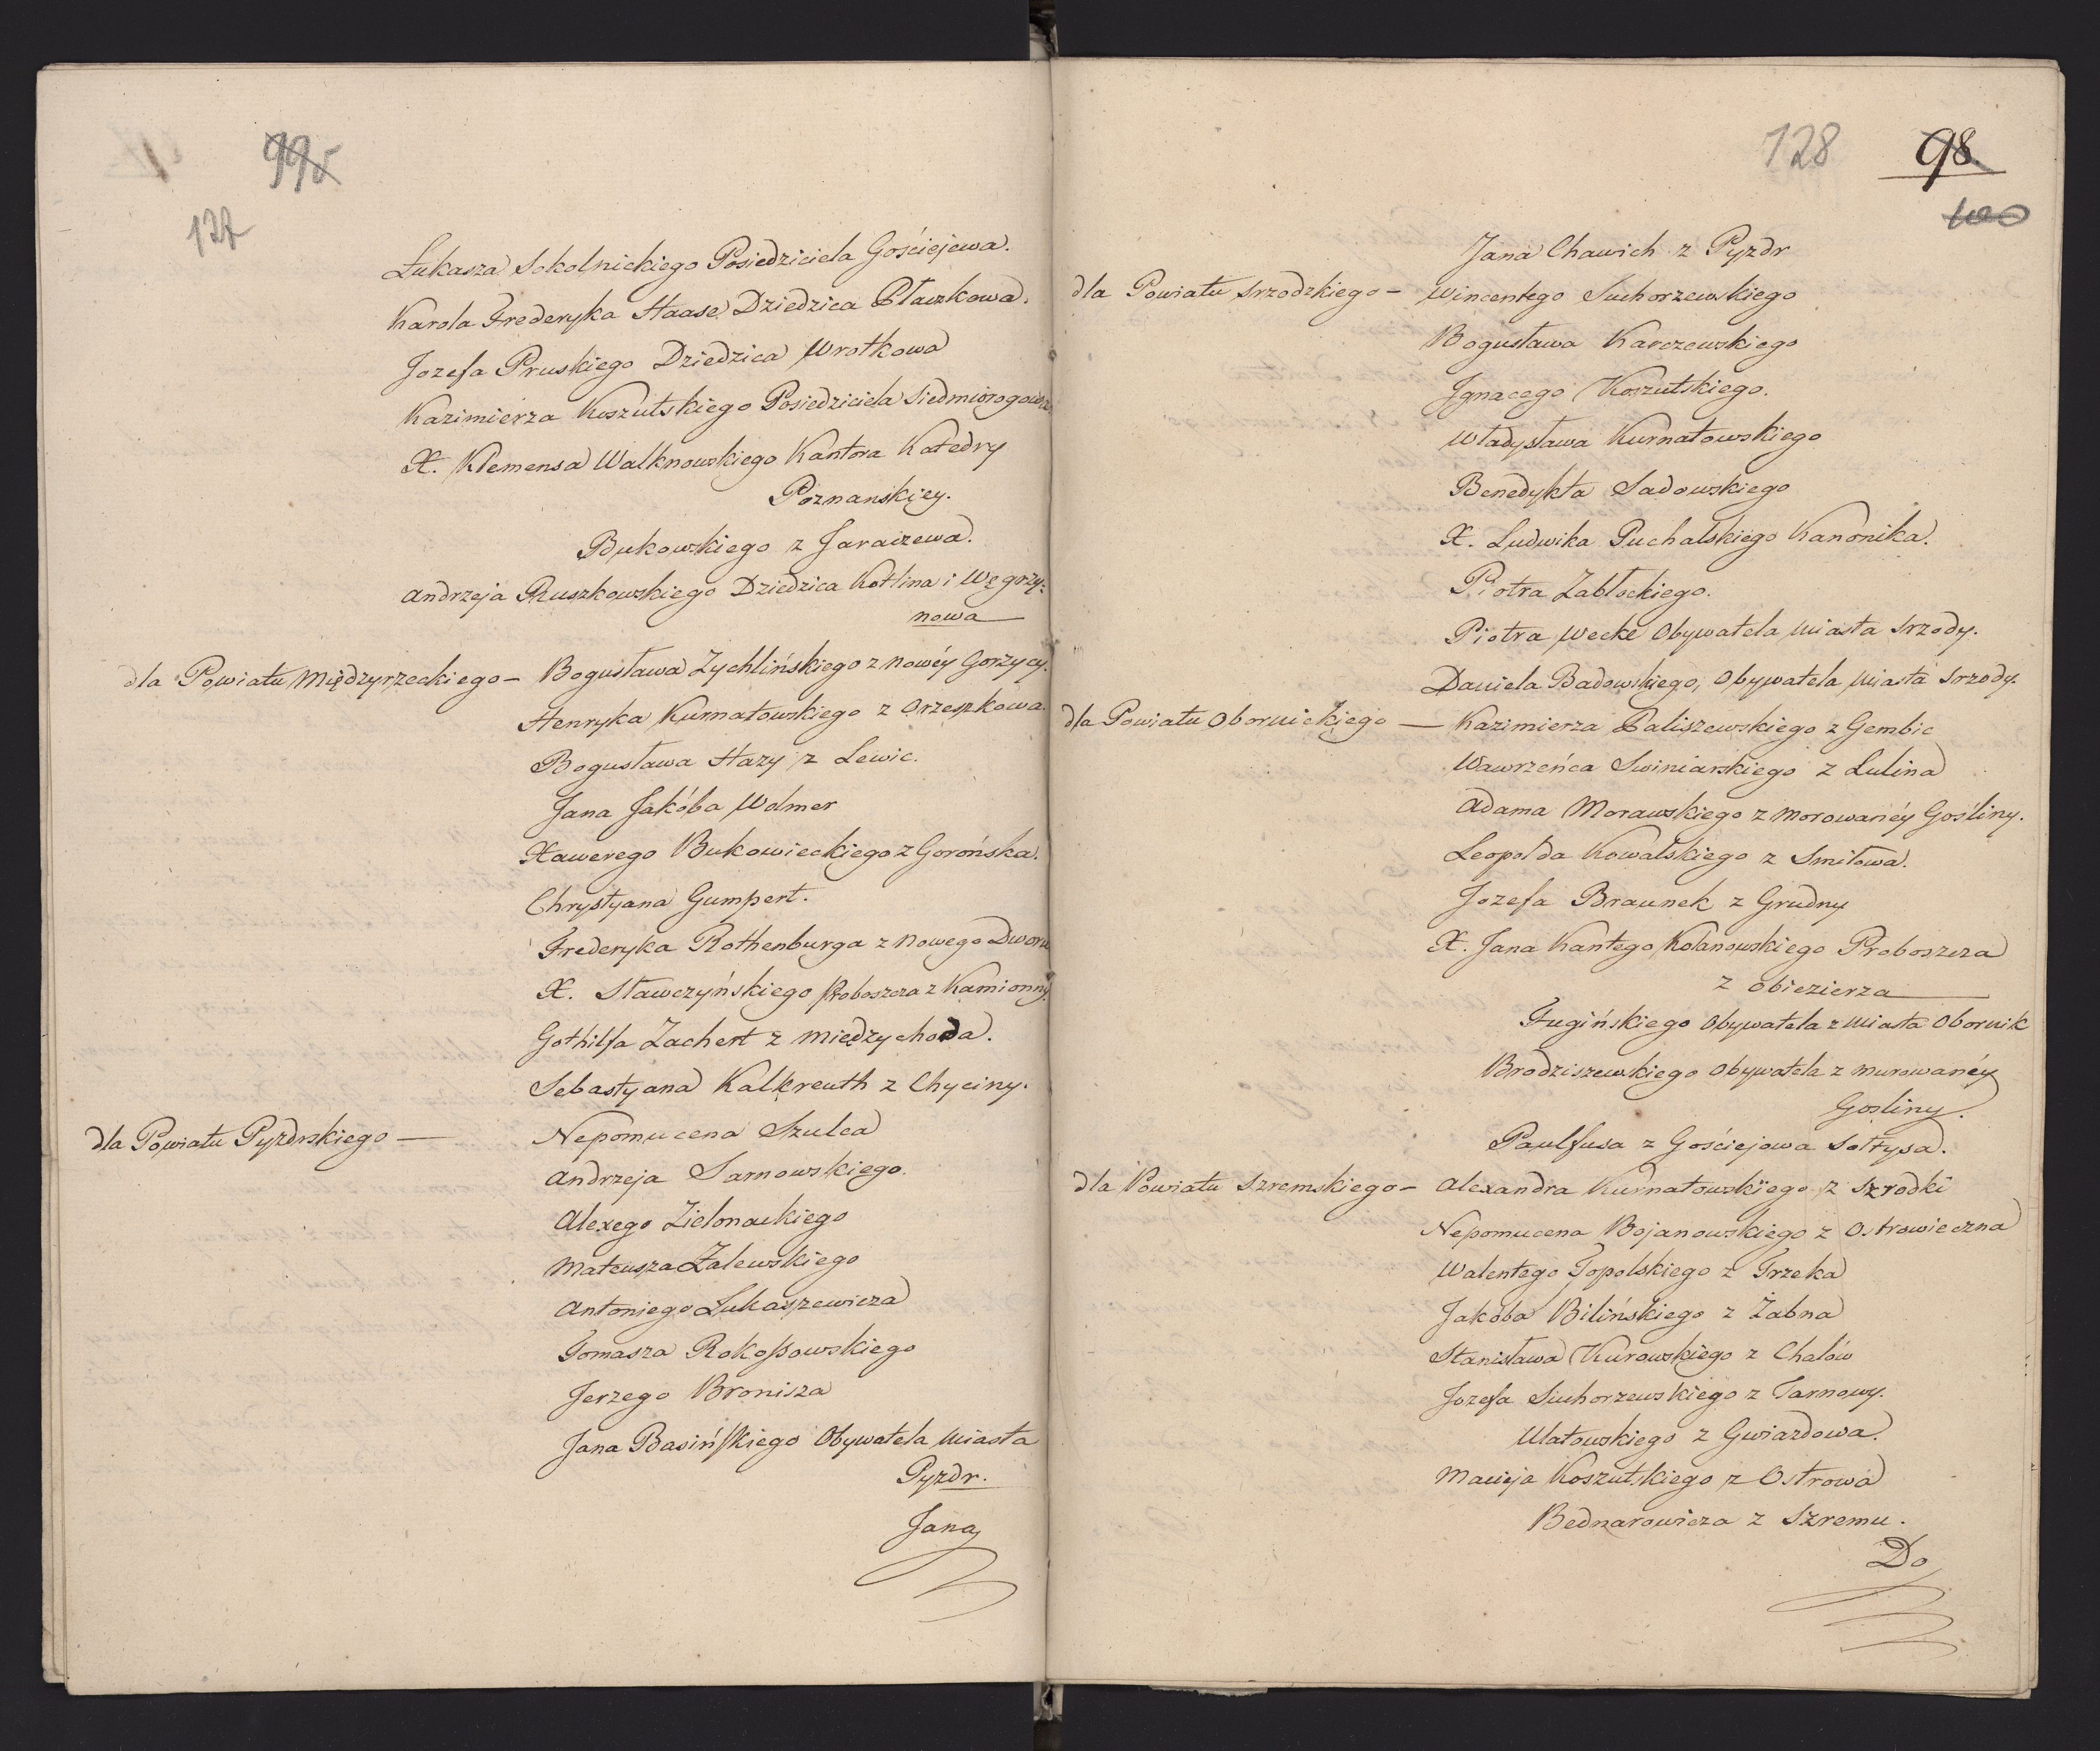 99v
127
Łukasza Sokolnickiego Posiedziciela Gościejewa.
Karola Frederyka Haase Dziedzica Ptaszkowa.
Jozefa Pruskiego Dziedzica Wrotkowa
Kazimierza Koszutskiego Posiedziciela Siedmiorogowa
X. Klemensa Walknowskiego Kantora Katedry
Poznanskiey.
Bukowskiego z Jaraczewa.
Andrzeja Ruszkowskiego Dziedzica Kotlina i Węgrzy-
nowa
dla Powiatu Międzyrzeckiego — Bogusława Zychlińskiego z Nowéy Gorzycy.
Henryka Kurnatowskiego z Orzeszkowa.
Bogusława Hazy z Lewic.
Jana Jakóba Wolmer
Xawerego Bukowieckiego z Gorońska.
Chrystyana Gumpert.
Frederyka Rothenburga z Nowego Dworu
X. Stawczyńskiego Proboszcza z Kamionny.
Gothilfa Zachert z Międzychoda.
Sebastyana Kalkreuth z Chyciny.
dla Powiatu Pyzdrskiego — Nepomucena Szulca
Andrzeja Sarnowskiego.
Alexego Zielonackiego
Mateusza Zalewskiego
Antoniego Łukaszewicza
Tomasza Rokossowskiego
Jerzego Bronisza
Jana Basińskiego Obywatela Miasta
Pyzdr.
Jana
128 98.
100
Jana Chawich z Pyzdr
dla Powiatu Srzodzkiego — Wincentego Suchorzewskiego
Bogusława Karczewskiego
Ignacego Koszutskiego.
Władysława Kurnatowskiego
Benedykta Sadowskiego
X. Ludwika Puchalskiego Kanonika.
Piotra Zabłockiego.
Piotra Wecke Obywatela Miasta Srzody.
Daniela Badowskiego, Obywatela Miasta Srzody.
dla Powiatu Obornickiego — Kazimierza Paliszewskiego z Gembic
Wawrzeńca Swiniarskiego z Lulina
Adama Morawskiego z Morowanéy Gośliny.
Leopolda Kowalskiego z Smiłowa.
Jozefa Braunek z Grudny
X. Jana Kantego Kolanowskiego Proboszcza
z Obiezierza
Fugińskiego Obywatela z Miasta Obornik
Brodziszewskiego Obywatela z Murowanéy
Gosliny.
Paulfusa z Gościejowa Sołtysa.
dla Powiatu Szremskiego — Alexandra Kurnatowskiego z Szrodki
Nepomucena Bojanowskiego z Ostrowieczna
Walentego Topolskiego z Trzeka
Jakóba Bilińskiego z Żabna
Stanisława Kurowskiego z Chalów
Jozefa Suchorzewskiego z Tarnowy.
Ulatowskiego z Gwiazdowa.
Macieja Koszutskiego z Ostrowa
Bednarowicza z Szremu.
Do